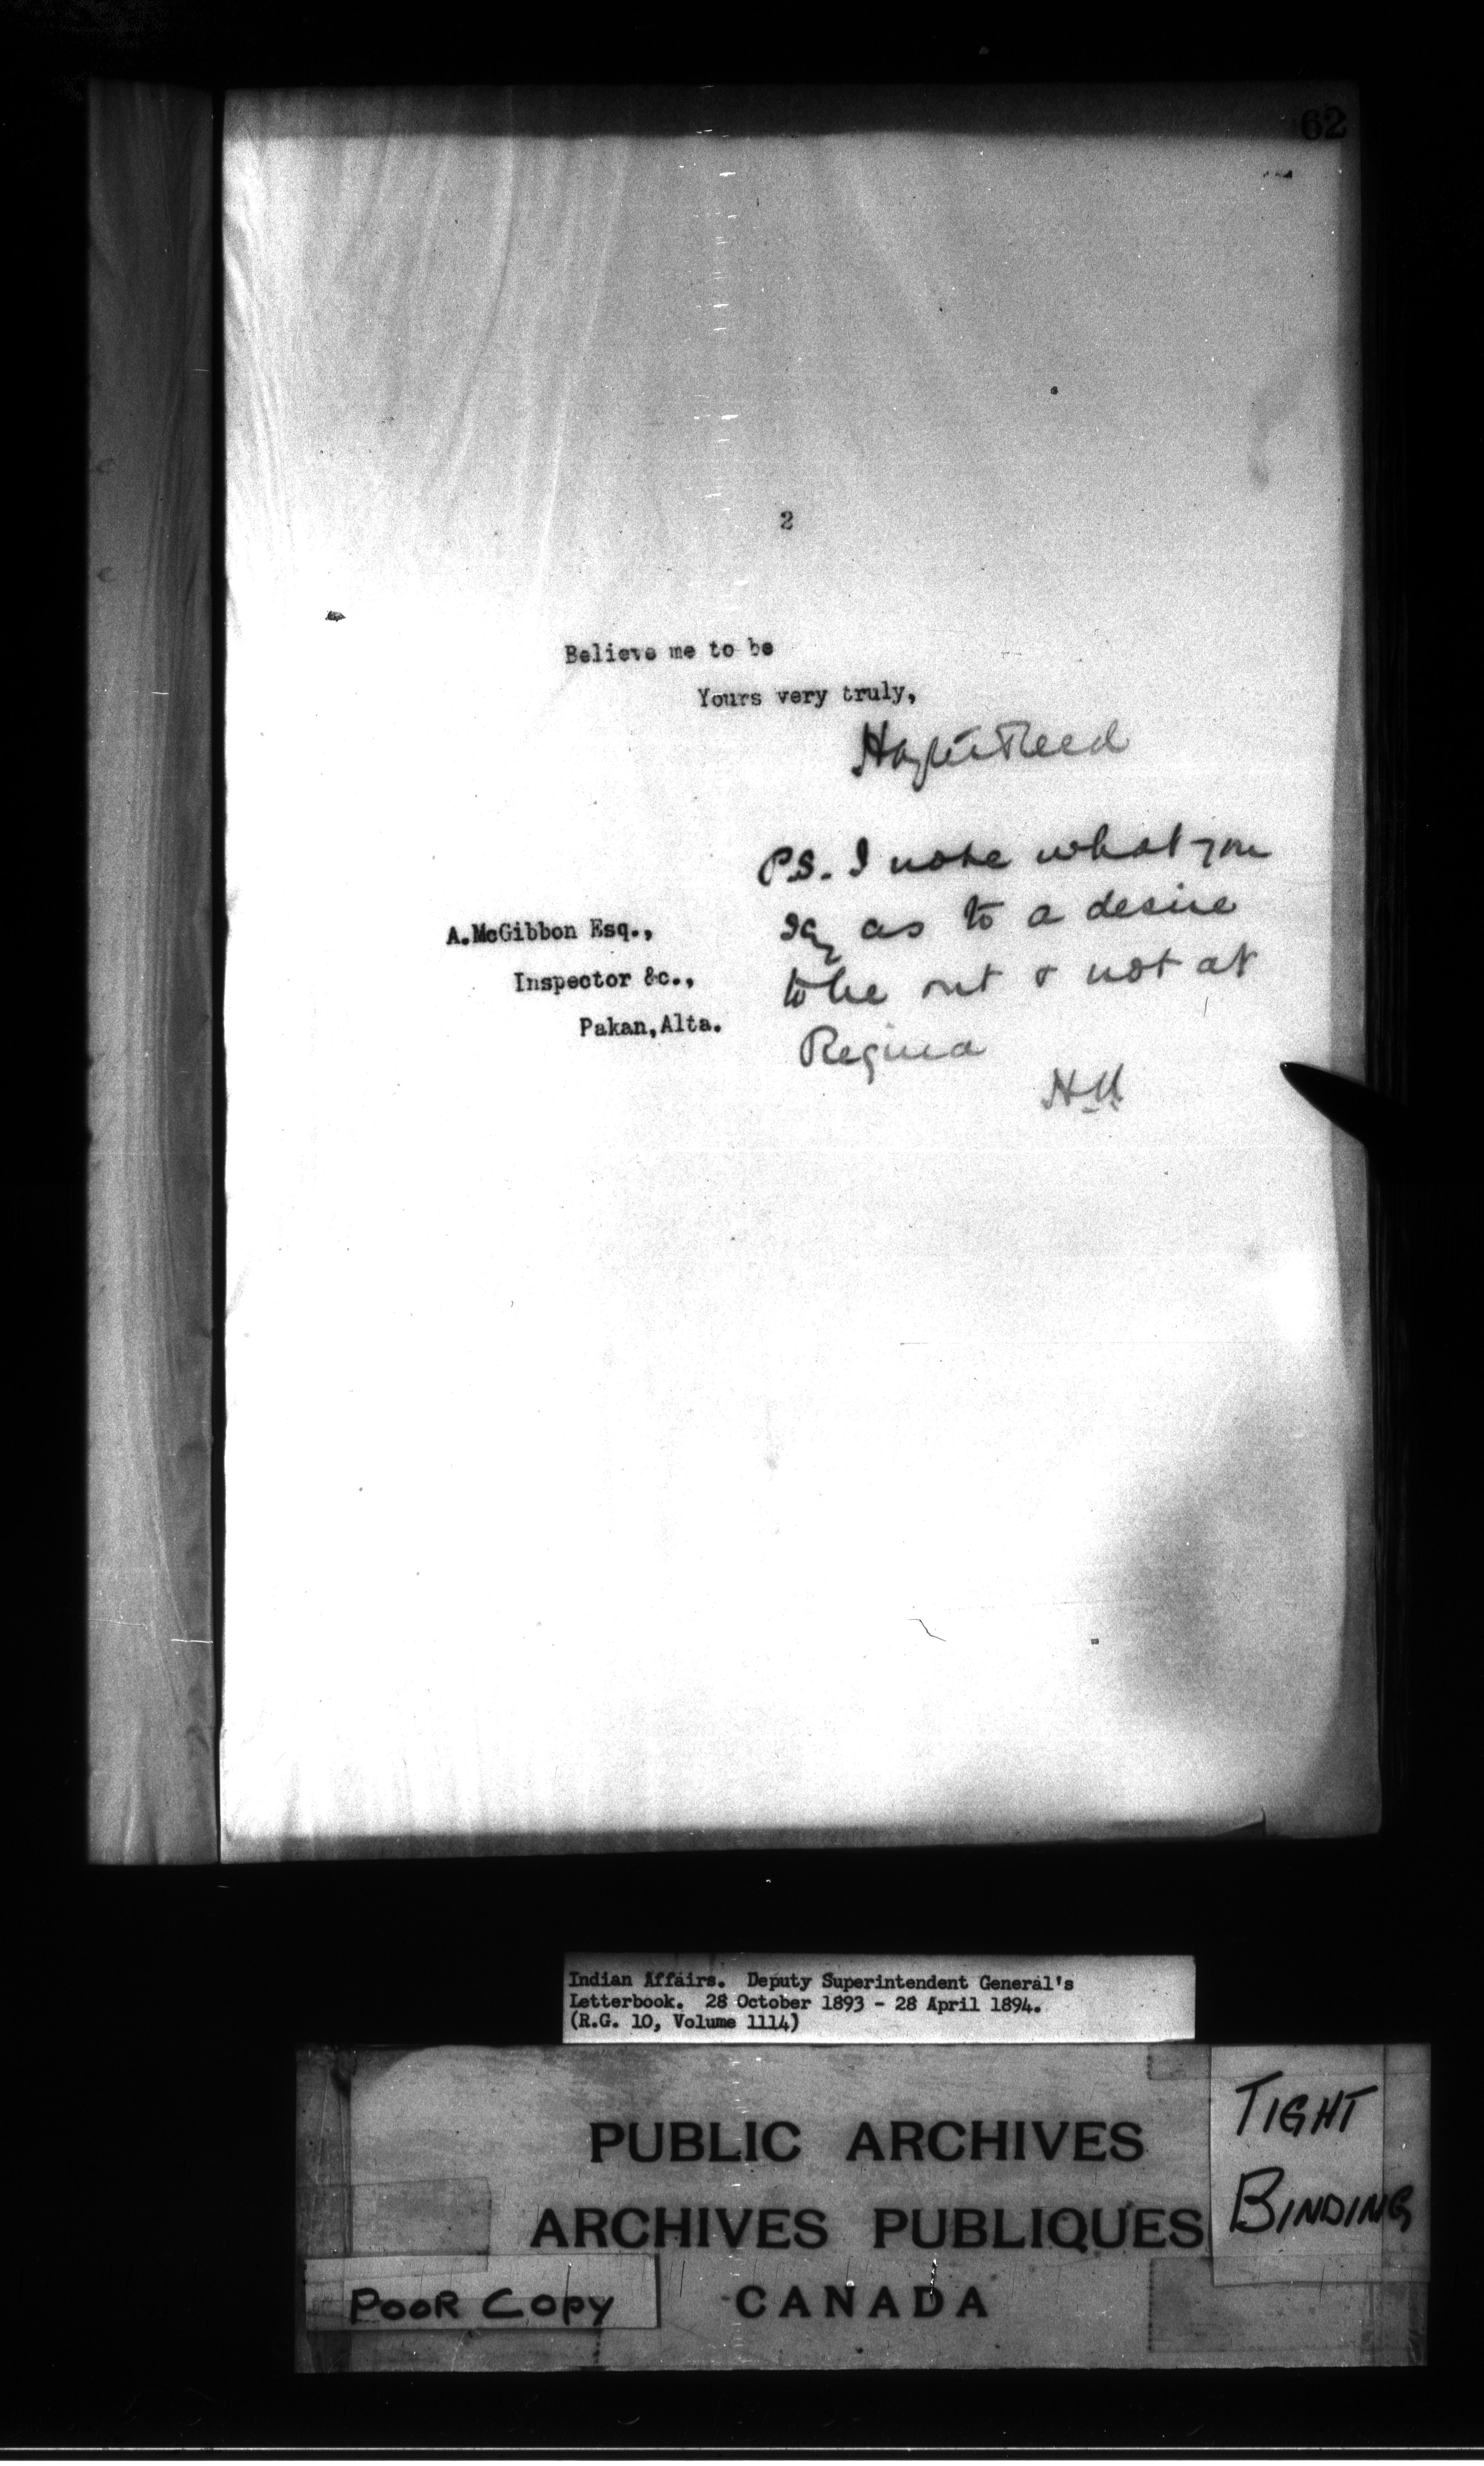 62
2
Believe me to be
Yours very truly,
Hayter Reed
P.S. I note what you
say as to a desire
to be out & not at
Regina
H.R.
A.McGibbon Esq.,
Inspector &c.,
Pakan,Alta.
Indian Affairs. Deputy Superintendent General's
Letterbook. 28 October 1893 - 28 April 1894.
(R.G. 10, Volume 1114)
PUBLIC ARCHIVES
ARCHIVES PUBLIQUES
CANADA
TIGHT
BINDING
POOR COPY